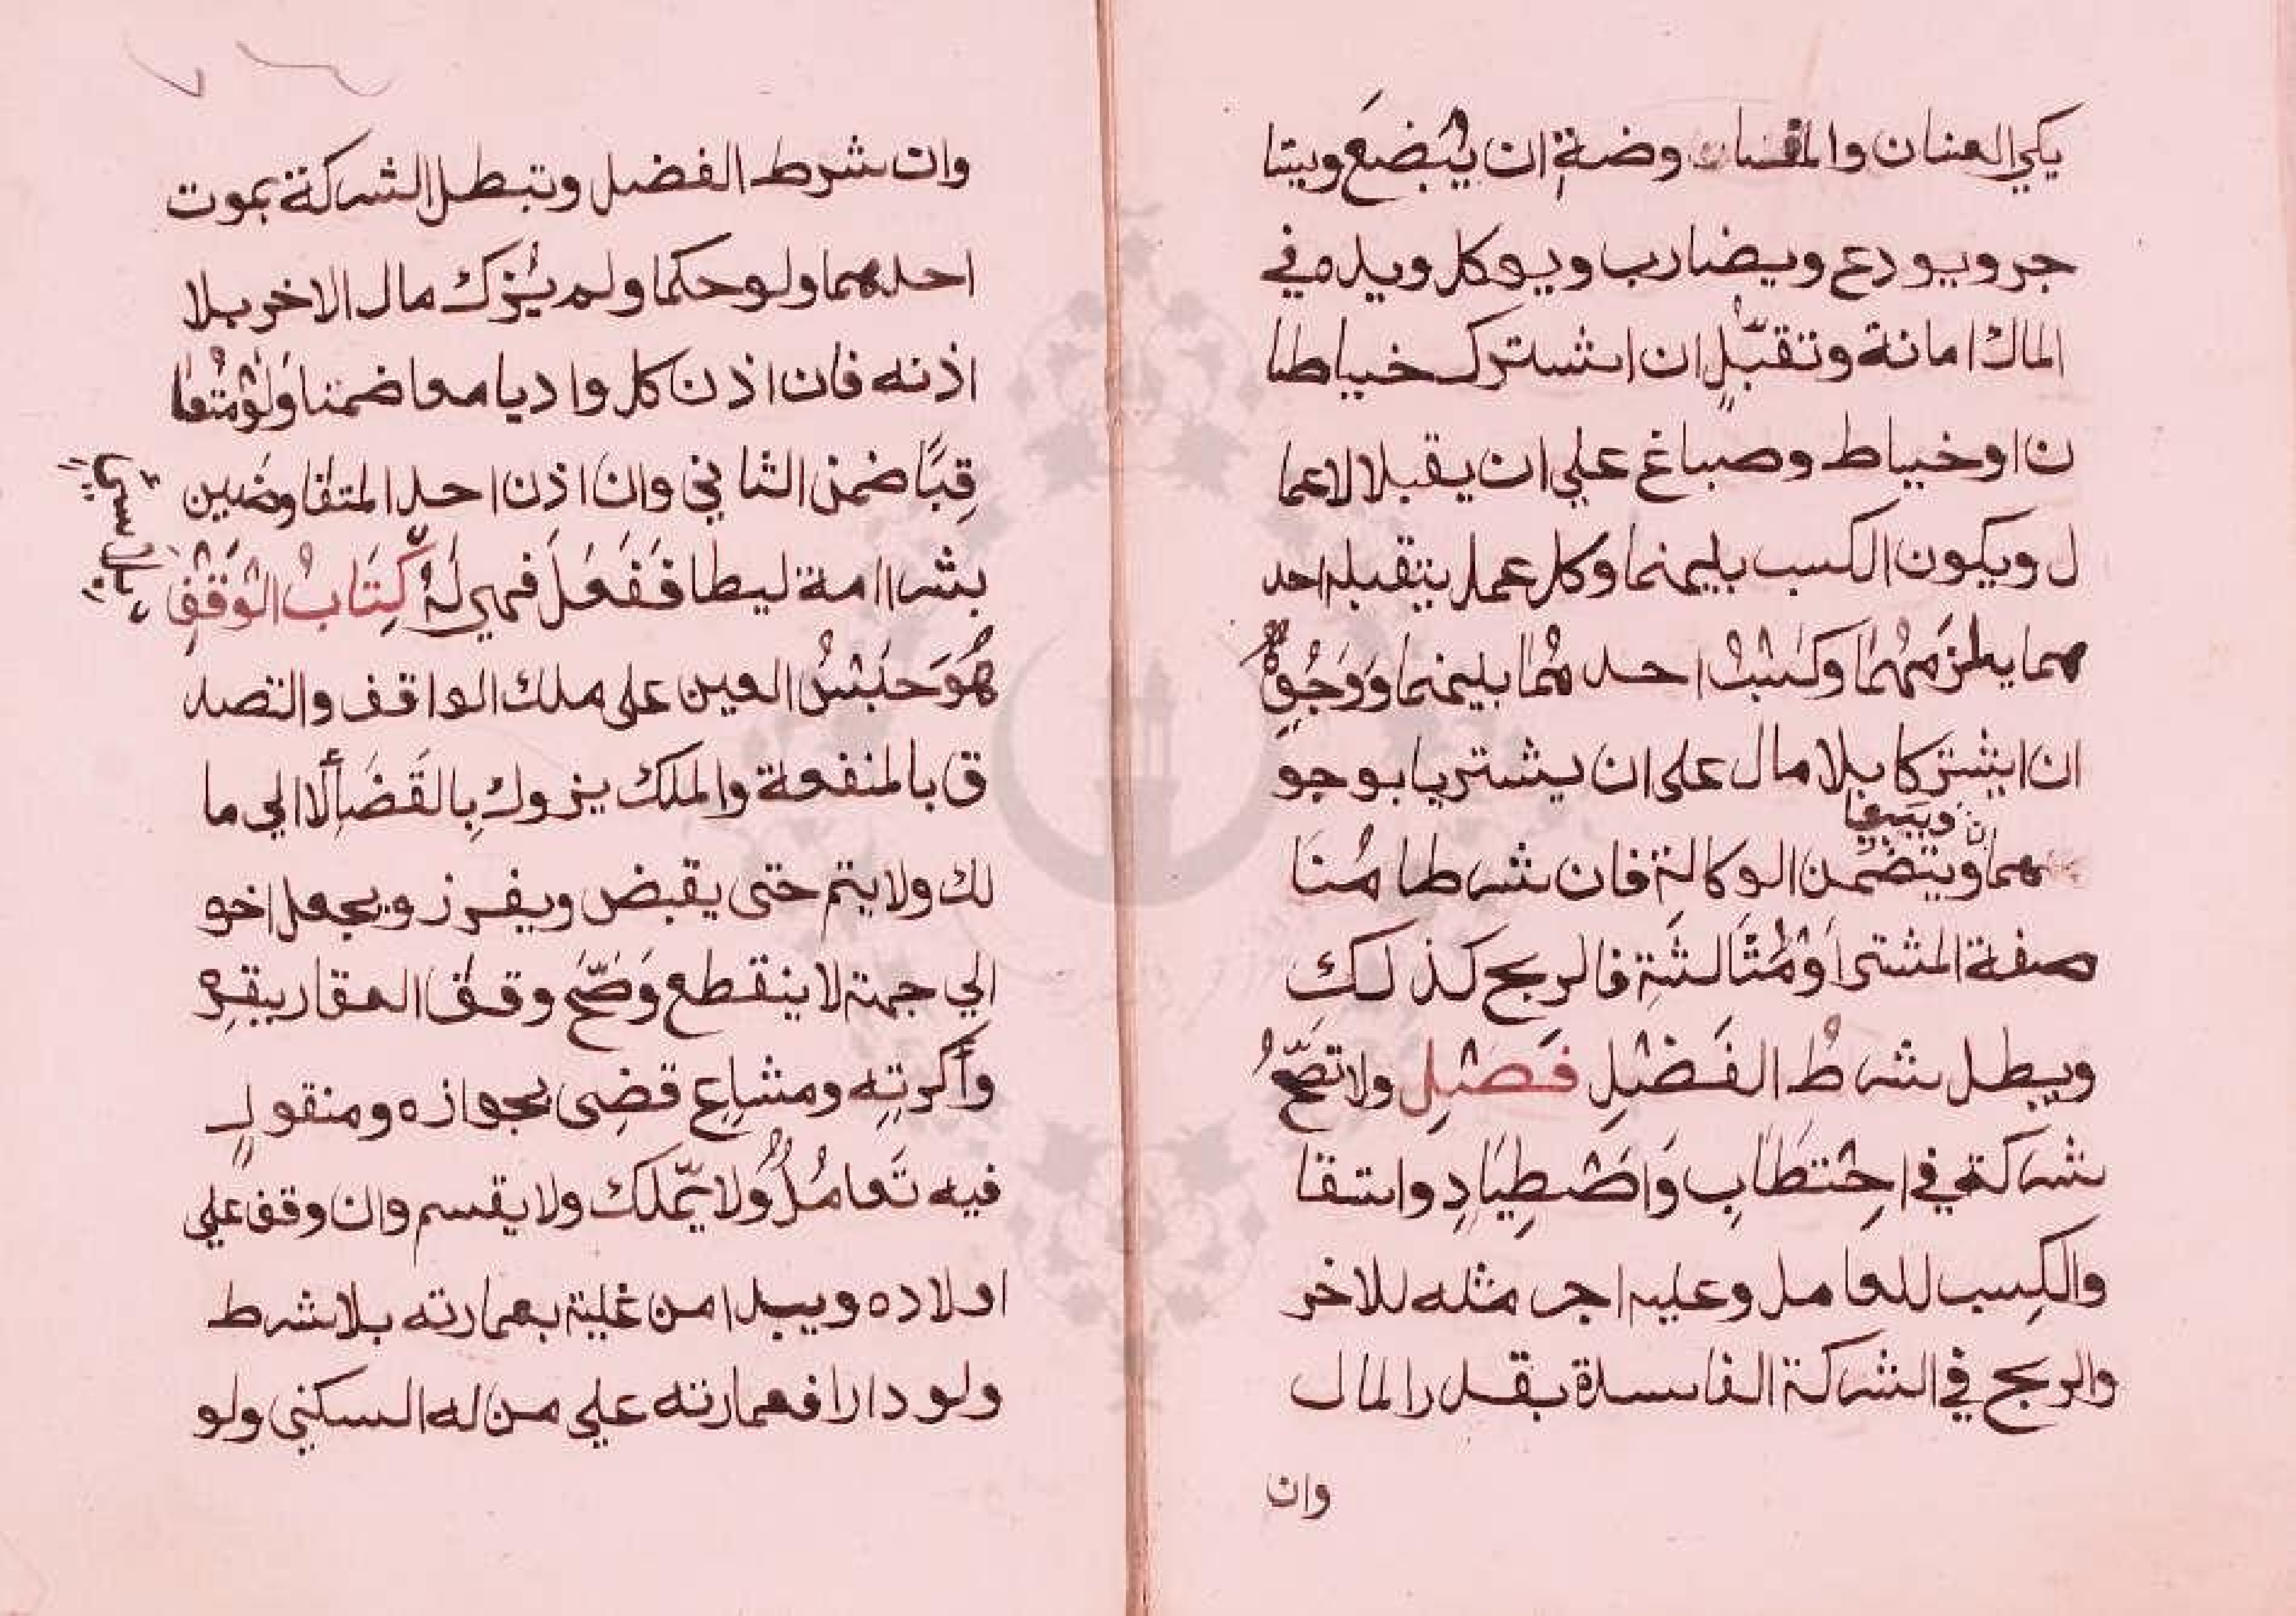 يكي العنان والمفاوضة ان يُبْضِعَ ويستا
جر ويودع ويضارب ويوكل ويده في
المال امانة وتقبّلٍ ان اشترك خياطا
ن او خياط وصباغ علي ان يقبلا الاعما
ل ويكون الكسب بينهما وكل عمل يتقبله احد
هما يلزمهما وكسبُ احدهما بينهما ووجوهٌ
ان اشتركا بلا مال على ان يشتريا بوجو
ههما ويبيعان ويتضمن الوكالة فان شرطا منا
صفة المشترا او مثالثة فالربح كذلك
ويبطل شرطُ الفَضْلِ فَصْل ولا تصحّ
شركة في احْتِطَابٍ وَاصْطِيَادٍ واستقا
والكسب للعامل وعليه اجر مثله للاخر
والربح في الشركة الفاسدة بقدر المال
وان
وان شرط الفضل وتبطل الشركة بموت
احدهما ولو حكما ولم يُزك مال الاخر بلا
اذنه فان اذن كل واديا معا ضمنا ولو متعا
قِبًا ضمن الثاني وان اذن احد المتفاوضين
بشرا امة ليطا فَفَعَلَ فهي لَهُ كِتَابُ الوَقْفِ
هُوَ حَبْسُ العين على ملك الواقف والتصد
ق بالمنفعة والملك يزول بِالقَضَا لا الي ما
لك ولا يتم حتى يقبض ويفرز ويجعل اخره
الي جهة لا ينقطع وَصَحّ وقف العقار ببقره
وأكرتِه ومشاعٍ قضى بجوازه ومنقولٍ
فيه تَعامُلٌ ولا يُملّك ولا يقسم وان وقف علي
اولاده ويبدا من غلته بعمارته بلا شرط
ولو دارا فعمارته علي من له السكني ولو